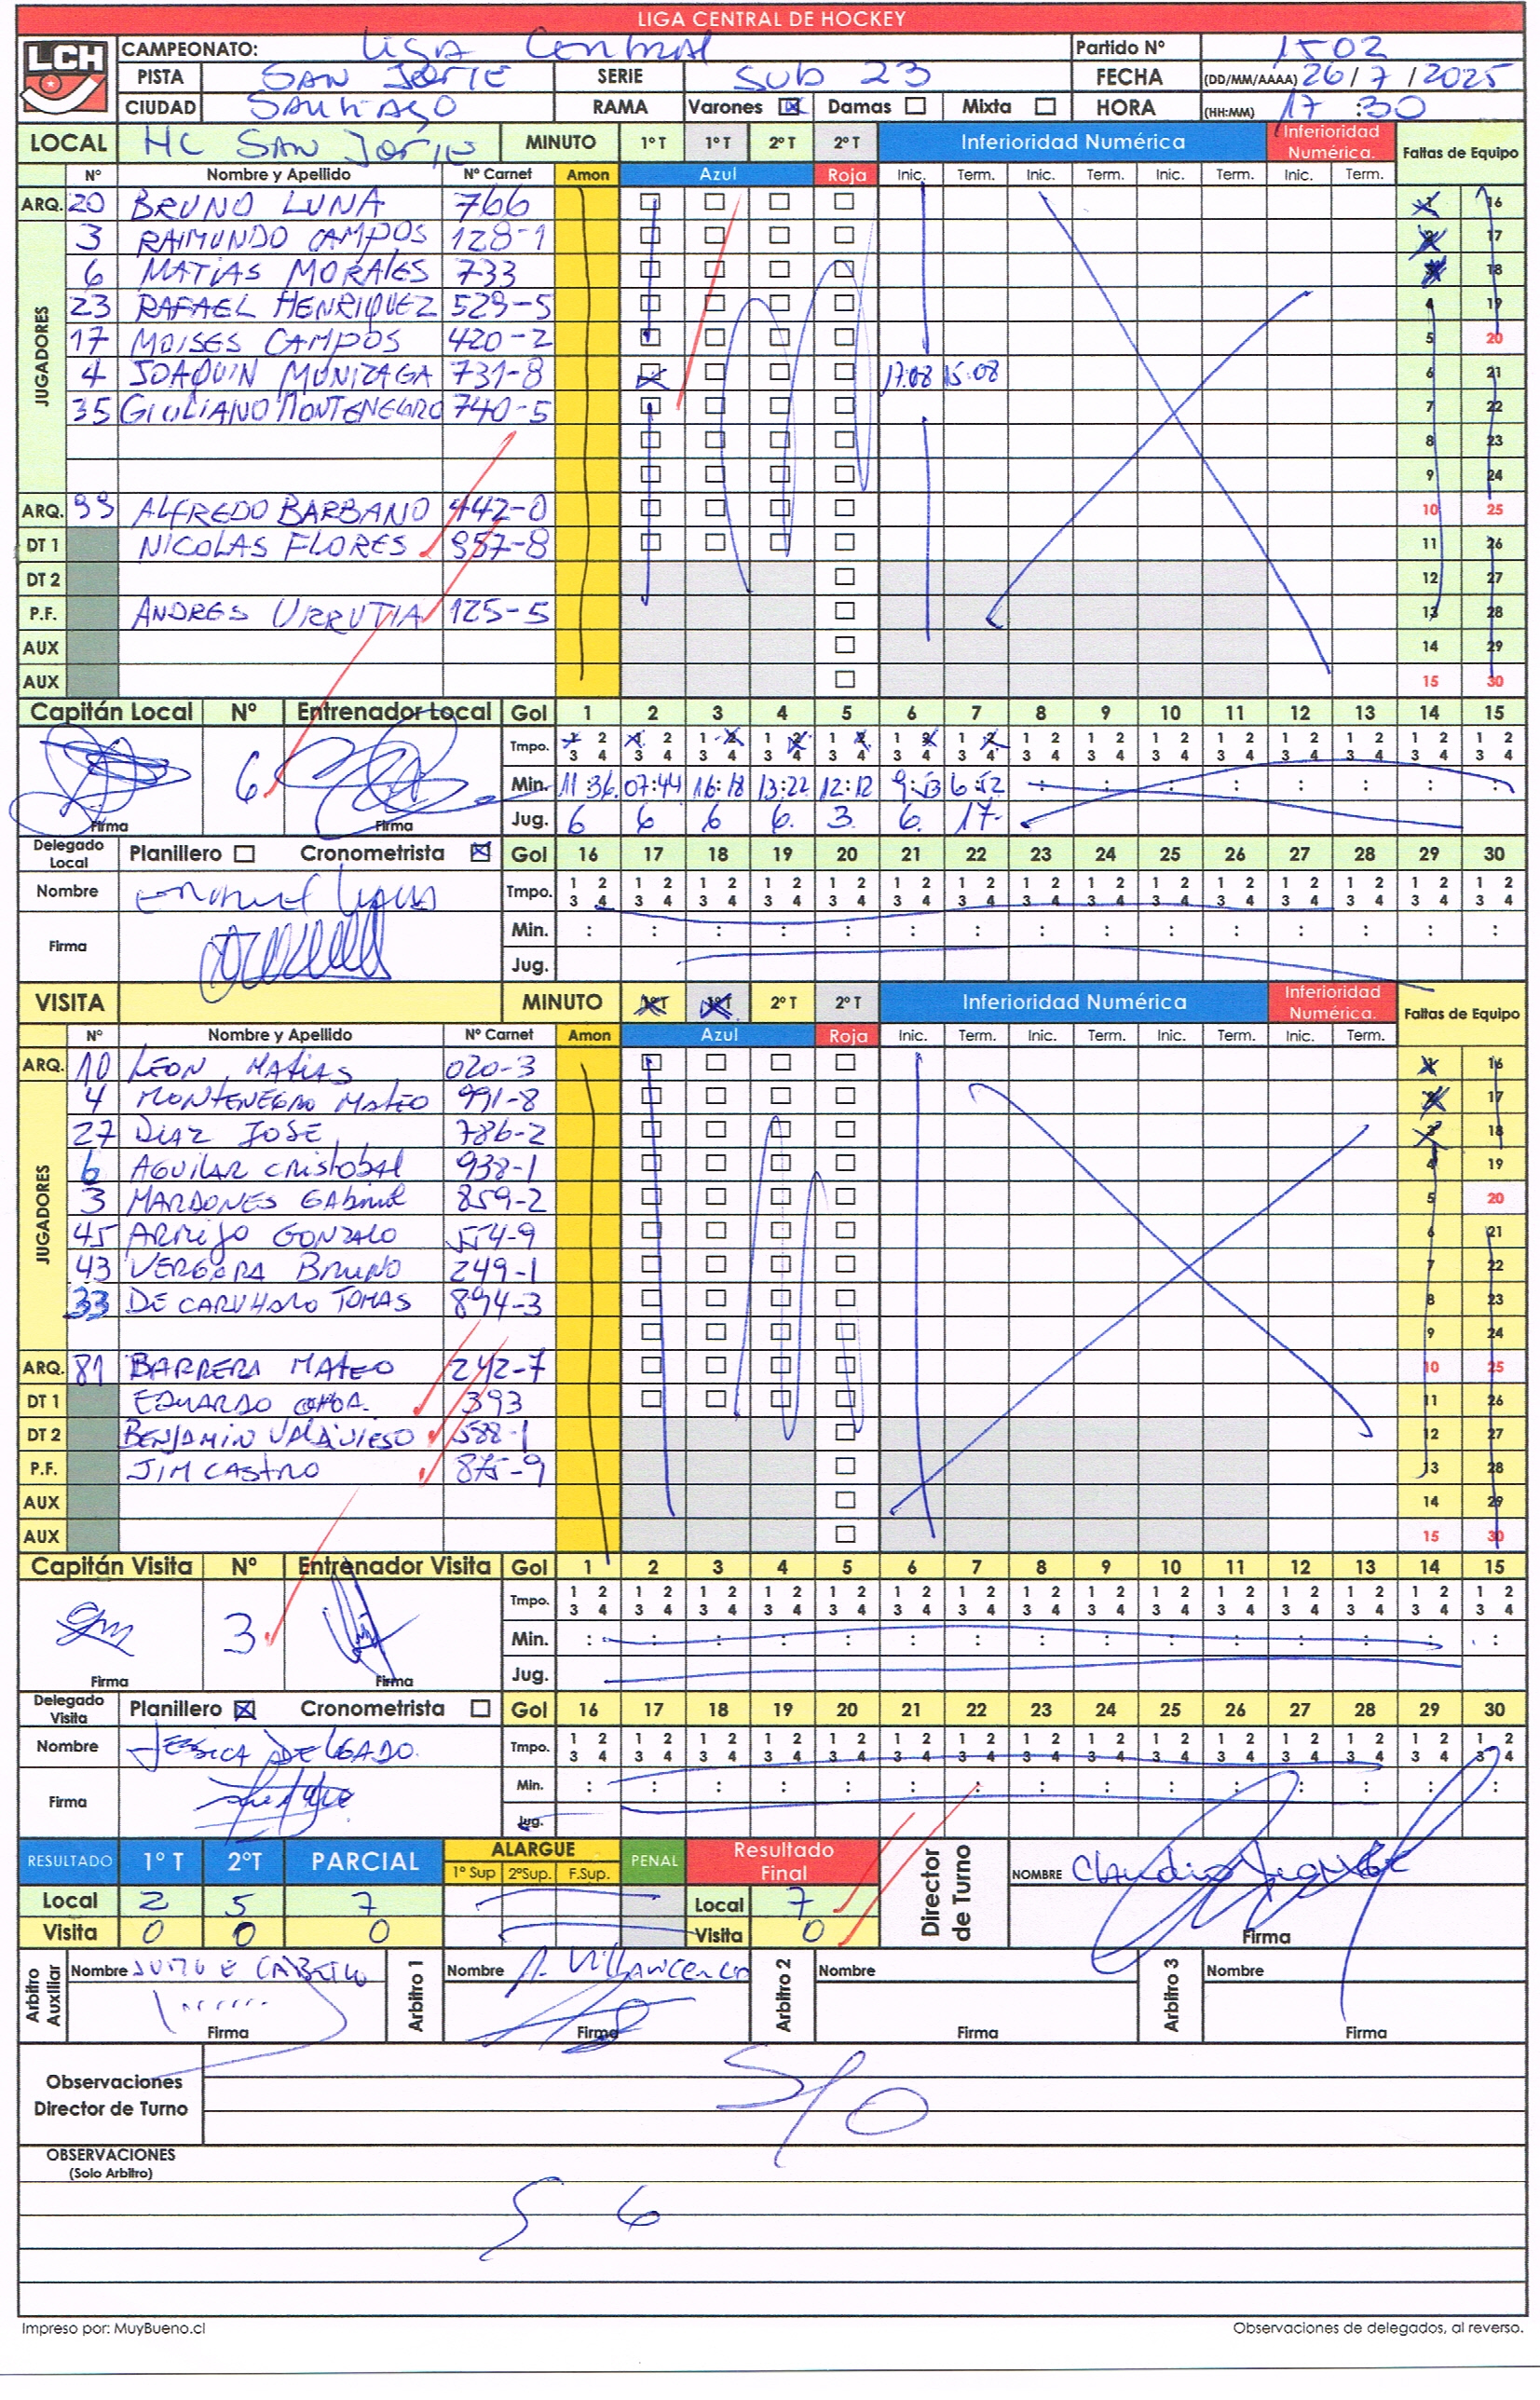 LIGA CENTRAL DE HOCKEY
LCH
CAMPEONATO: LIGA CENTRAL Partido Nº 1502
PISTA SAN JORJE SERIE SUB 23 FECHA (DD/MM/AAAA) 26/7/2025
CIUDAD SANTIAGO RAMA Varones ☒ Damas ☐ Mixta ☐ HORA (HH:MM) 17:30
LOCAL HC SAN JORJE MINUTO 1º T 1º T 2º T 2º T Inferioridad Numérica Inferioridad Numérica. Faltas de Equipo
Nº Nombre y Apellido Nº Carnet Amon Azul Roja Inic. Term. Inic. Term. Inic. Term. Inic. Term.
JUGADORES
ARQ. 20 BRUNO LUNA 766 1 16
3 RAIMUNDO CAMPOS 128-1 2 17
6 MATIAS MORALES 733 3 18
23 RAFAEL HENRIQUEZ 529-5 4 19
17 MOISES CAMPOS 420-2 5 20
4 JOAQUIN MUNIZAGA 731-8 17:08 15:08 6 21
35 GIULIANO MONTENEGRO 740-5 7 22
8 23
9 24
ARQ. 99 ALFREDO BARBANO 442-0 10 25
DT 1 NICOLAS FLORES 957-8 11 26
DT 2 12 27
P.F. ANDRES URRUTIA 125-5 13 28
AUX 14 29
AUX 15 30
Capitán Local Nº Entrenador Local Gol 1 2 3 4 5 6 7 8 9 10 11 12 13 14 15
6 Tmpo. 1 2 3 4 1 2 3 4 1 2 3 4 1 2 3 4 1 2 3 4 1 2 3 4 1 2 3 4 1 2 3 4 1 2 3 4 1 2 3 4 1 2 3 4 1 2 3 4 1 2 3 4 1 2 3 4 1 2 3 4
Min. 11:36 07:44 16:18 13:22 12:12 9:53 6:52 : : : : : : : :
Firma Firma Jug. 6 6 6 6. 3. 6. 17.
Delegado Local Planillero ☐ Cronometrista ☒ Gol 16 17 18 19 20 21 22 23 24 25 26 27 28 29 30
Nombre Tmpo. 1 2 3 4 1 2 3 4 1 2 3 4 1 2 3 4 1 2 3 4 1 2 3 4 1 2 3 4 1 2 3 4 1 2 3 4 1 2 3 4 1 2 3 4 1 2 3 4 1 2 3 4 1 2 3 4 1 2 3 4
Firma Min. : : : : : : : : : : : : : : :
Jug.
VISITA MINUTO 1º T 1º T 2º T 2º T Inferioridad Numérica Inferioridad Numérica. Faltas de Equipo
Nº Nombre y Apellido Nº Carnet Amon Azul Roja Inic. Term. Inic. Term. Inic. Term. Inic. Term.
JUGADORES
ARQ. 10 LEON, MATIAS 020-3 1 16
4 MONTENEGRO MATEO 991-8 2 17
27 DIAZ JOSE 786-2 3 18
6 AGUILAR CRISTOBAL 938-1 4 19
3 MARDONES GABRIEL 859-2 5 20
45 ARMIJO GONZALO 554-9 6 21
43 VERGARA BRUNO 249-1 7 22
33 DE CARVHALO TOMAS 894-3 8 23
9 24
ARQ. 81 BARRERA MATEO 242-7 10 25
DT 1 EDUARDO OCHOA. 393 11 26
DT 2 BENJAMIN VALDIVIESO 588-1 12 27
P.F. JIM CASTRO 875-9 13 28
AUX 14 29
AUX 15 30
Capitán Visita Nº Entrenador Visita Gol 1 2 3 4 5 6 7 8 9 10 11 12 13 14 15
3 Tmpo. 1 2 3 4 1 2 3 4 1 2 3 4 1 2 3 4 1 2 3 4 1 2 3 4 1 2 3 4 1 2 3 4 1 2 3 4 1 2 3 4 1 2 3 4 1 2 3 4 1 2 3 4 1 2 3 4 1 2 3 4
Min. : : : : : : : : : : : : : : :
Firma Firma Jug.
Delegado Visita Planillero ☒ Cronometrista ☐ Gol 16 17 18 19 20 21 22 23 24 25 26 27 28 29 30
Nombre JESSICA DELGADO. Tmpo. 1 2 3 4 1 2 3 4 1 2 3 4 1 2 3 4 1 2 3 4 1 2 3 4 1 2 3 4 1 2 3 4 1 2 3 4 1 2 3 4 1 2 3 4 1 2 3 4 1 2 3 4 1 2 3 4 1 2 3 4
Firma Min. : : : : : : : : : : : : : : :
Jug.
RESULTADO 1º T 2ºT PARCIAL ALARGUE 1º Sup 2ºSup. F.Sup. PENAL Resultado Final Director de Turno NOMBRE Claudio
Local 2 5 7 Local 7
Visita 0 0 0 Visita 0 Firma
Arbitro Auxiliar Nombre Arbitro 1 Nombre Villavicencio Arbitro 2 Nombre Arbitro 3 Nombre
Firma Firma Firma Firma
Observaciones Director de Turno S/O
OBSERVACIONES
(Solo Arbitro)
Impreso por: MuyBueno.cl Observaciones de delegados, al reverso.